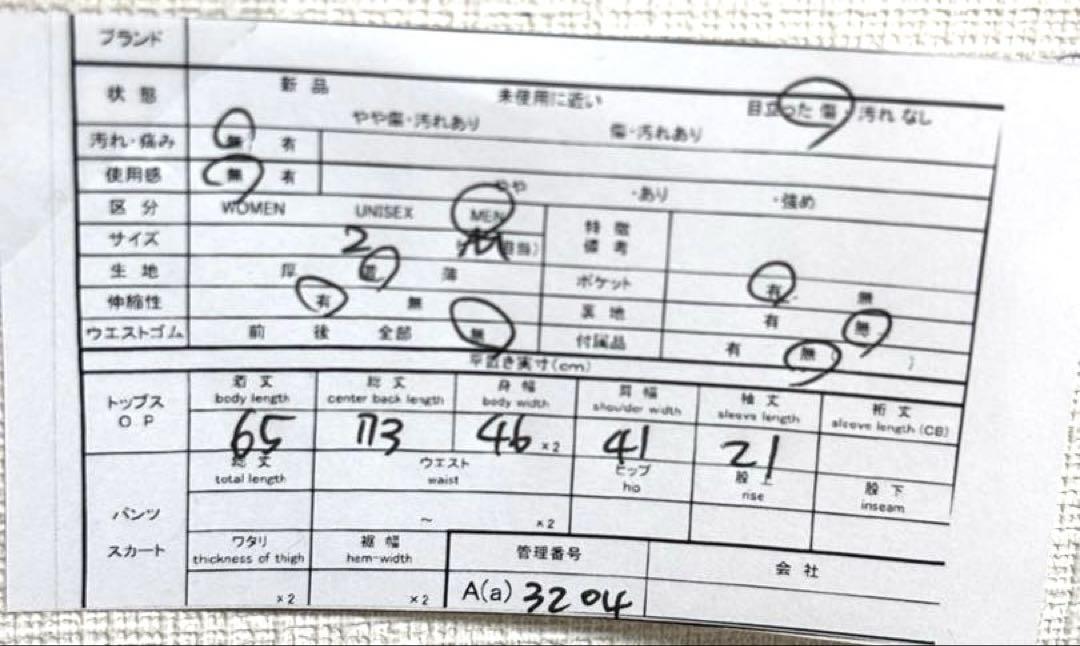 ブランド
状態 新品 未使用に近い 目立った傷・汚れなし
やや傷・汚れあり 傷・汚れあり
汚れ・痛み 無 有
使用感 無 有 やや ・あり ・強め
区分 WOMEN UNISEX MEN 特徴
備考
サイズ 2 M 担当)
生地 厚 普 薄 ポケット 有 無
伸縮性 有 無 裏地 有 無
ウエストゴム 前 後 全部 無 付属品 有 無 )
平置き実寸(cm)
トップス
OP
着丈 総丈 身幅 肩幅 袖丈 裄丈
body length center back length body width shoulder width sleeve length sleeve length (CB)
65 113 46 ×2 41 21
パンツ
スカート
総丈 ウエスト ヒップ 股上 股下
total length waist hip rise inseam
~ ×2
ワタリ 裾幅 管理番号 会社
thickness of thigh hem-width
×2 ×2 A(a) 3204